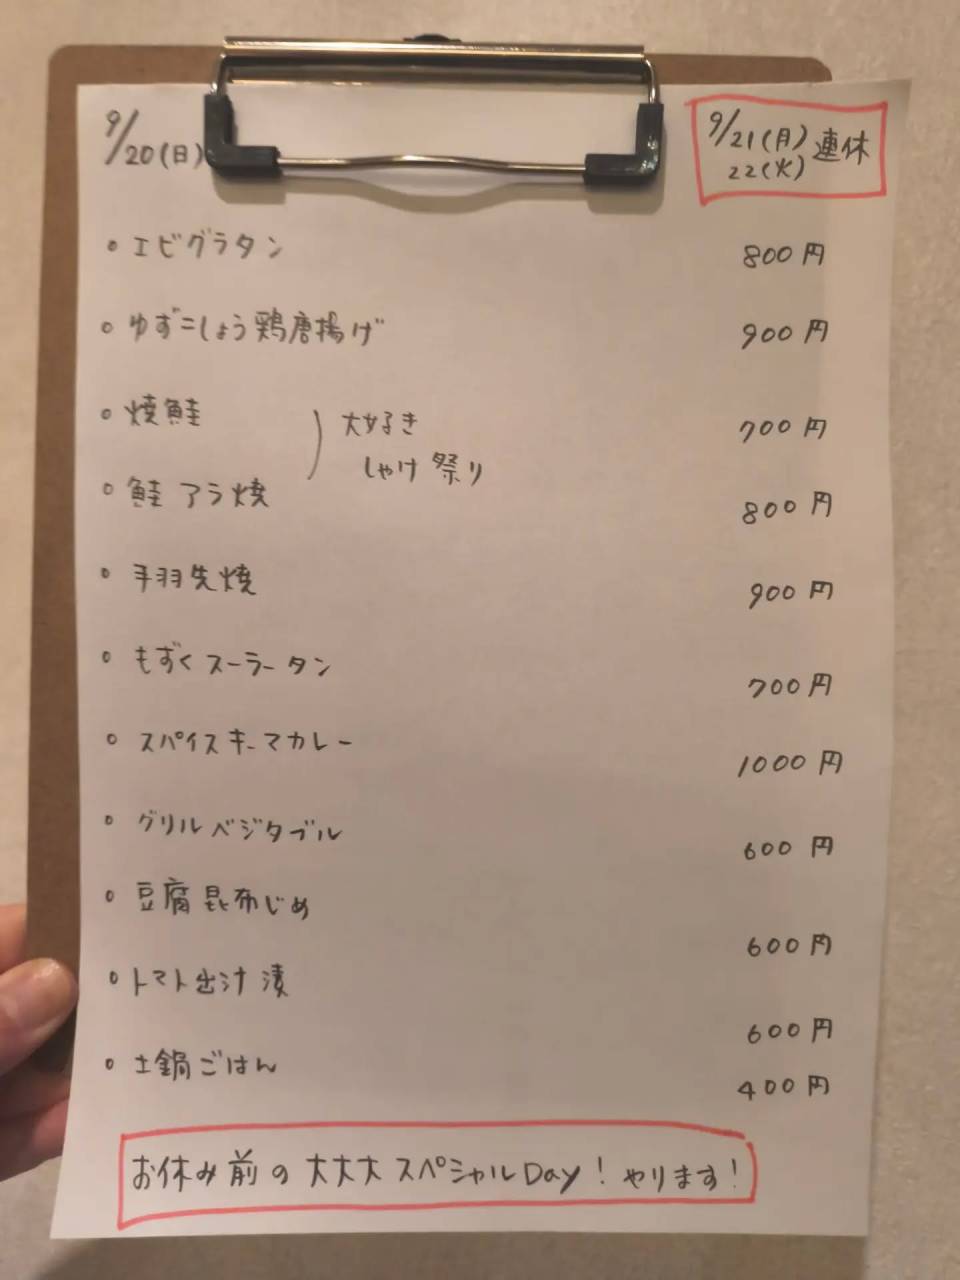 9/20(日)
9/21(月)
22(火)
連休
・エビグラタン 800円
・ゆずこしょう鶏唐揚げ 900円
・焼鮭 700円
・鮭アラ焼 800円
大好き
しゃけ祭り
・手羽先焼 900円
・もずくスーラータン 700円
・スパイスキーマカレー 1000円
・グリルベジタブル 600円
・豆腐昆布じめ 600円
・トマト出汁漬 600円
・土鍋ごはん 400円
お休み前の大大大スペシャルDay!やります!